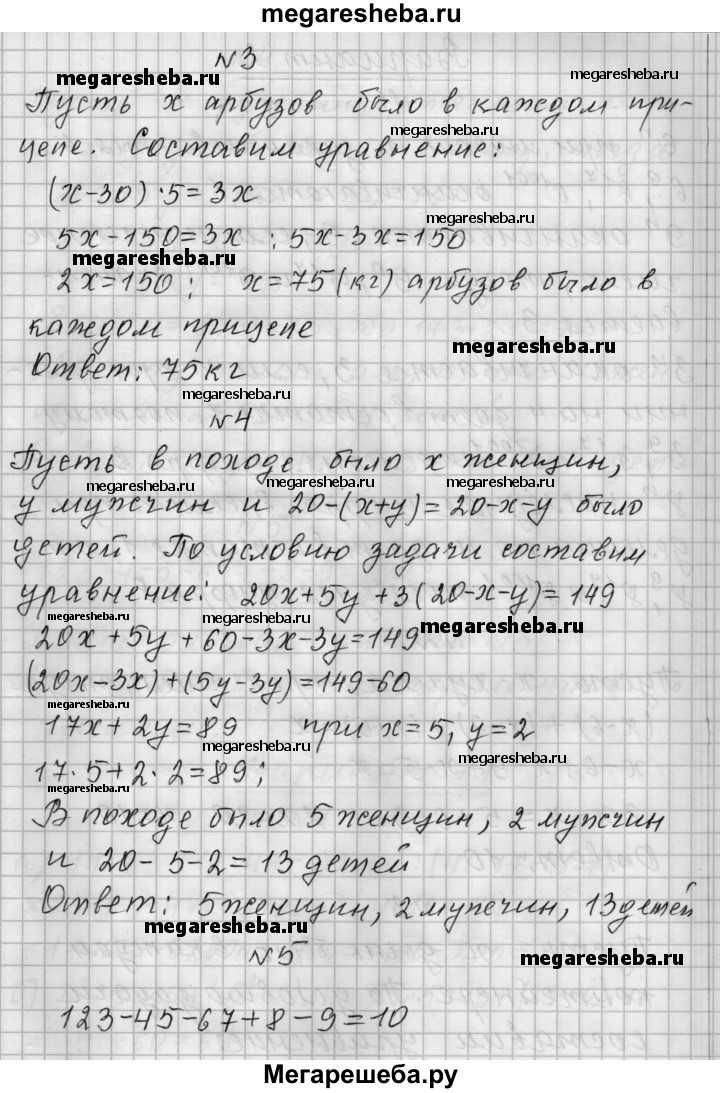 megaresheba.ru
№3
megaresheba.ru
megaresheba.ru
Пусть х арбузов было в каждом при-
megaresheba.ru
цепе. Составим уравнение:
(х-30)·5=3х
megaresheba.ru
5х-150=3х ; 5х-3х=150
megaresheba.ru
2х=150 ; х=75(кг) арбузов было в
каждом прицепе
megaresheba.ru
Ответ: 75кг
megaresheba.ru
№4
Пусть в походе было х женщин,
megaresheba.ru megaresheba.ru megaresheba.ru
у мужчин и 20-(х+у)=20-х-у было
детей. По условию задачи составим
уравнение: 20х+5у+3(20-х-у)=149
megaresheba.ru
megaresheba.ru
20х+5у+60-3х-3у=149
(20х-3х)+(5у-3у)=149-60
17х+2у=89 при х=5, у=2
megaresheba.ru
megaresheba.ru
17·5+2·2=89;
megaresheba.ru
В походе было 5 женщин, 2 мужчин
и 20-5-2=13 детей
Ответ: 5женщин, 2мужчин, 13детей
megaresheba.ru
№5
megaresheba.ru
123-45-67+8-9=10
Мегарешеба.ру